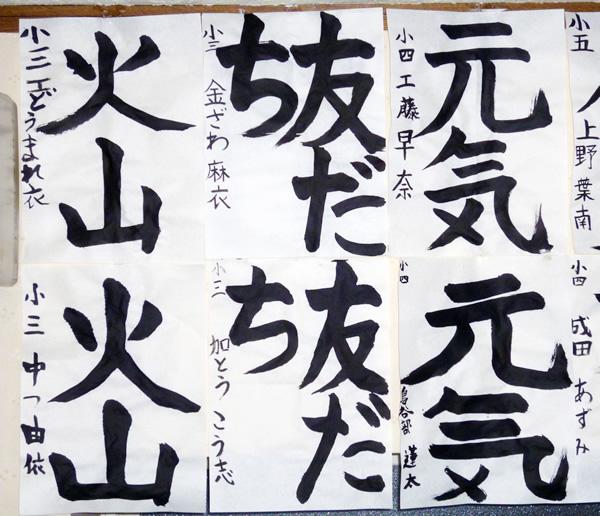 火山
小三 工どうまれ衣
友だ
ち
小三 金ざわ麻衣
元気
小四 工藤早奈
小五 上野葉南
火山
小三 中つ由依
友だ
ち
小三 加とうこう志
元気
小四 鳥谷部蓮太
小四 成田あずみ